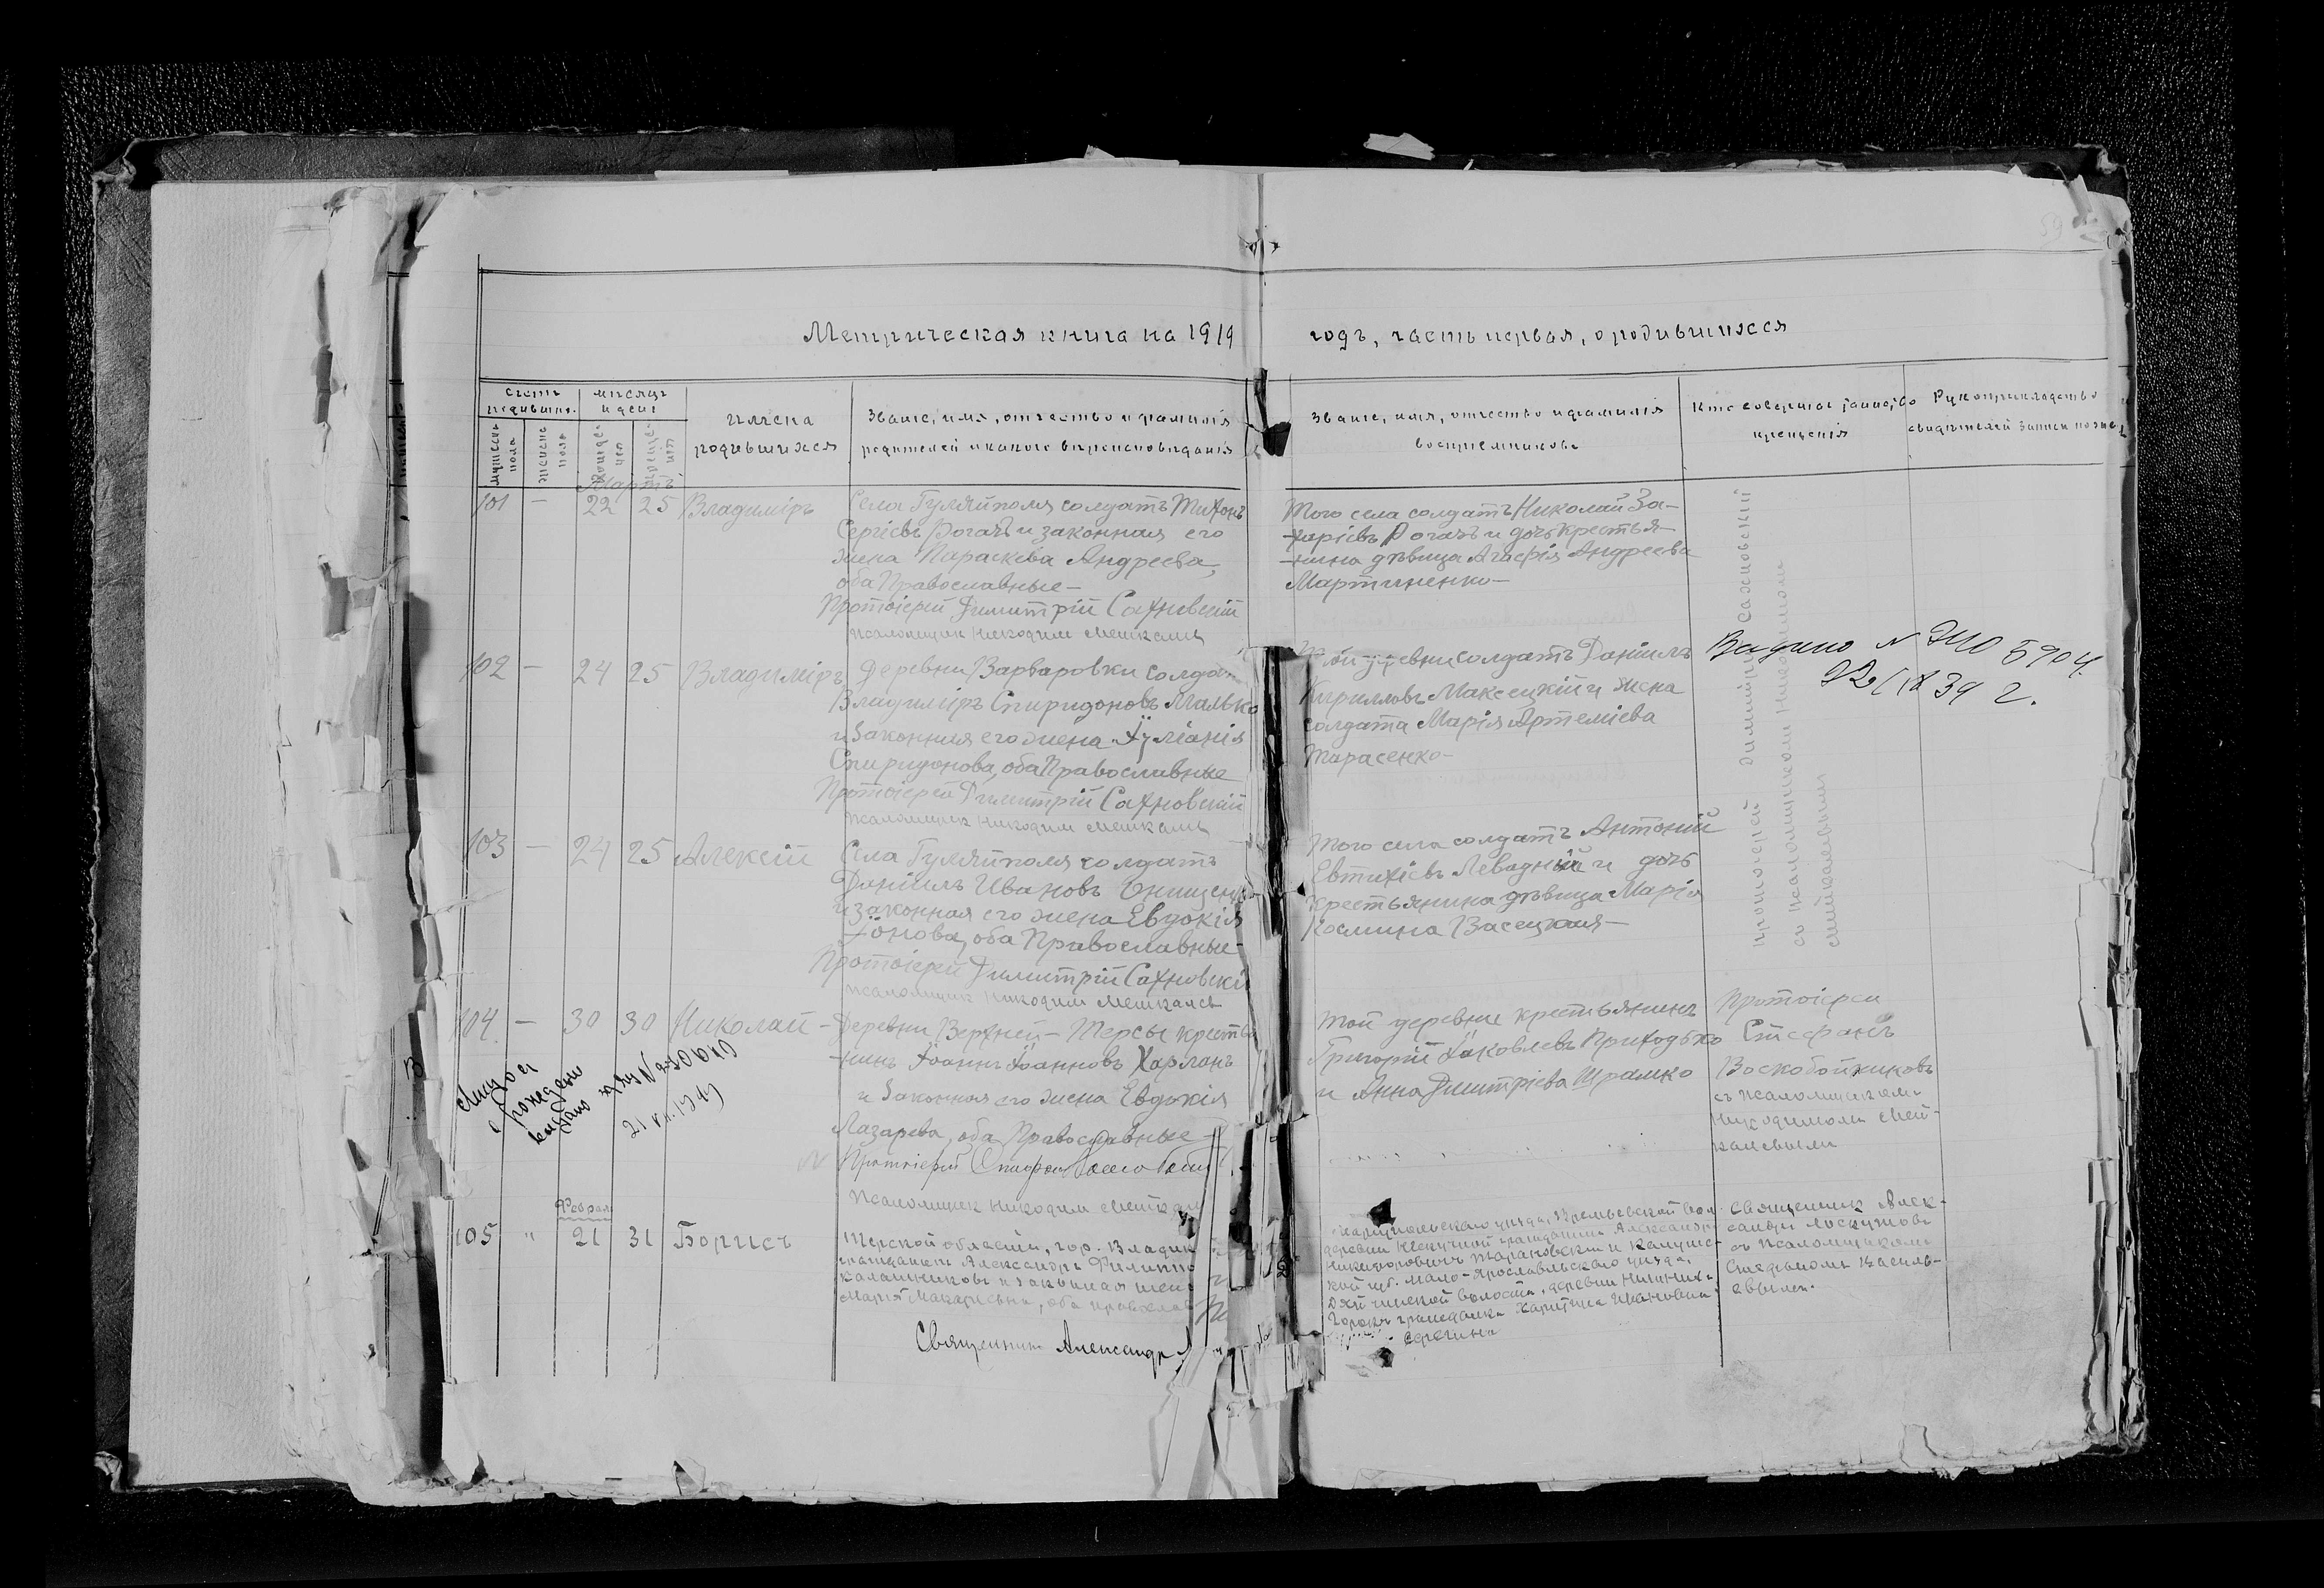 Метрическая книга на 1919
годъ, часть первая, о родившихся
мужеска пола
женска пола
мѣсяцъ
и день
имена
родившихся
Званіе, имя, отчество и фамилія
родителей и какого вѣроисповѣданія
Званіе, имя, отчество и фамилія
воспріемниковъ
Кто совершалъ таинство
крещенія
Рукоприкладство
свидѣтелей записи
Мартъ
101 — 22 25 Владиміръ
Села Гуляйполя солдатъ Тихонъ
Сергіевъ Рогачъ и законная его
жена Параскева Андреева,
оба Православные —
Протоіерей Димитрій Сахновскій
псаломщикъ Никодим
Того села солдатъ Николай За-
харіевъ Рогачъ и дочь крестья-
нина дѣвица Агафія Андреева
Мартыненко —
Протоіерей Димитрій Сахновскій
съ псаломщикомъ Никодимомъ
102 — 24 25 Владиміръ
Деревни Варваровки солда
Владиміръ Спиридоновъ Малько
и законная его жена Іуліанія
Спиридонова, оба Православные
Протоіерей Димитрій Сахновскій
псаломщикъ Никодим
Той деревни солдатъ Даніилъ
Кирилловъ и жена
солдата Марія Артеміева
Тарасенко —
Видано № 5904
39 г.
103 — 24 25 Алексій
Села Гуляйполя солдатъ
Даніилъ Ивановъ
и законная его жена Евдокія
Іонова, оба Православные —
Протоіерей Димитрій Сахновскі
псаломщикъ Никодим
Того села солдатъ Антоній
Евтихіевъ Левадный и дочь
крестьянина дѣвица Марія
Космина Васецкая —
104 — 30 30 Николай —
Деревни Верхней-Терсы крестья
нинъ Іоаннъ Іоанновъ Харланъ
и законная его жена Евдокія
Лазарева, оба Православные —
Протоіерей Стефан
Псаломщикъ Никодим
Той деревни крестьянинъ
Григорій Іаковлевъ Приходько
и Анна Димитріева Шрамко
Протоіерей
Стефанъ
Воскобойниковъ
съ псаломщикомъ
Никодимомъ Мей-
рождению
видано
21 VII. 1949
Феврал
105 " 21 31 Борисъ
Терской области, гор. Владик
гражданинъ Александръ Филиппо
Калашниковъ и законная жен
Марія Макаріевна, оба православ
Священникъ Александръ
деревни гражданинъ Александръ
Никифоровичъ Тарановскій и Калужс-
кой губ. Мало-Ярославльскаго уѣзда,
волости, деревни Нижних
гражданка Харитина Ивановна
Священник Алек-
сандръ Лоскутовъ
съ псаломщикомъ
Стефаномъ Василь-
евымъ.